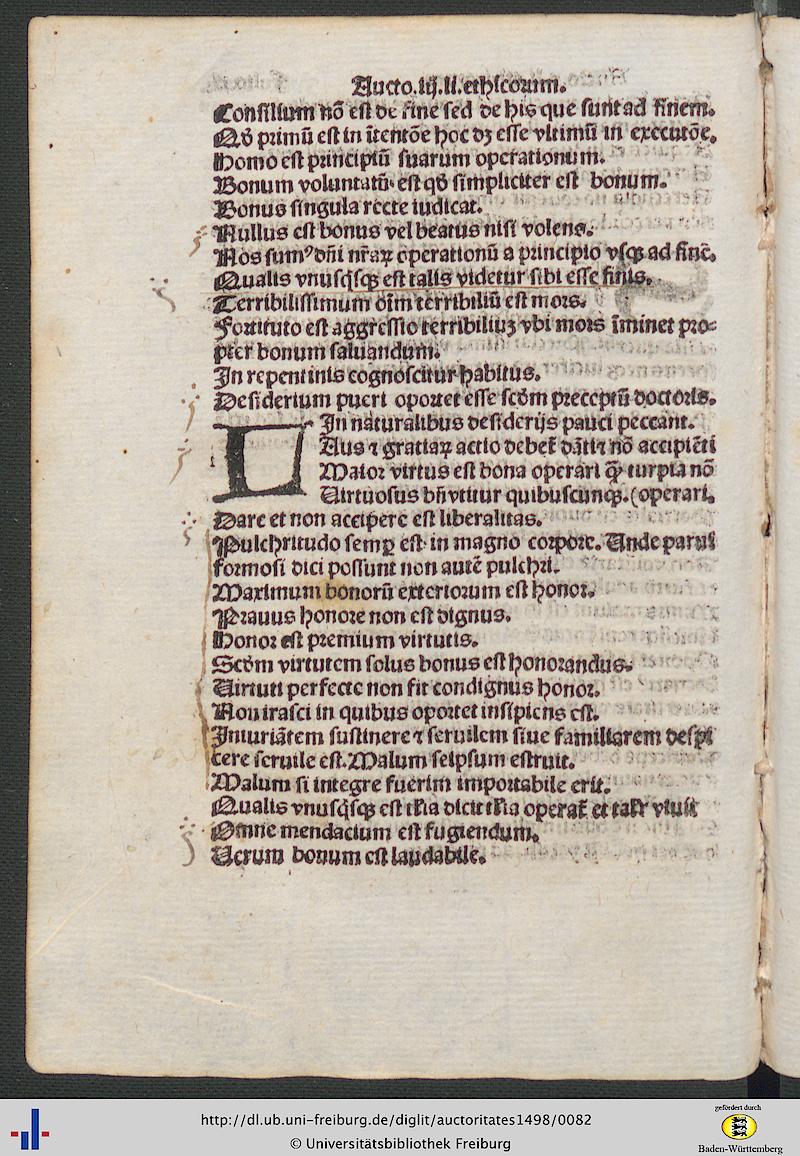 Aucto.iij.li.ethicorum.
Consilium nõ est de fine sed de his que sunt ad finem.
Qđ primũ est in ĩtentõe hoc dꝫ esse vltimũ in executõe.
Homo est principiũ suarum operationum.
Bonum voluntatũ est qđ simpliciter est bonum.
Bonus singula recte iudicat.
Nullus est bonus vel beatus nisi volens.
Nos sumꝰ dñi nr̃aꝝ operationũ a principio vsqꝫ ad finẽ.
Qualis vnusq̇sqꝫ est talis videtur sibi esse finis.
Terribilissimum oĩm terribiliũ est mors.
Fortituto est aggressio terribiliuꝫ vbi mors ĩminet pro⸗
pter bonum saluandum.
In repentinis cognoscitur habitus.
Desiderium pueri oportet esse scđm preceptũ doctoris.
In naturalibus desiderijs pauci peccant.
LAus ⁊ gratiaꝝ actio debet̃ dãti ⁊ nõ accipiẽti
Maior virtus est bona operari qꝫ̃ turpia nõ
Uirtuosus bñ vtitur quibuscunqꝫ. (operari.
Dare et non accipere est liberalitas.
Pulchritudo semꝑ est in magno corpore. Unde parui
formosi dici possunt non autẽ pulchri.
Maximum bonorũ exteriorum est honor.
Prauus honore non est dignus.
Honor est premium virtutis.
Scđm virtutem solus bonus est honorandus.
Uirtuti perfecte non fit condignus honor.
Non irasci in quibus oportet insipiens est.
Iniuriãtem sustinere ⁊ seruilem siue familiarem despi
cere seruile est. Malum seipsum estruit.
Malum si integre fuerim importabile erit.
Qualis vnusq̇sqꝫ est tł̃ia dicit tł̃ia operat̃ et talr̃ viuit
Omne mendacium est fugiendum.
Uerum bonum est laudabile.
http://dl.ub.uni-freiburg.de/diglit/auctoritates1498/0082
© Universitätsbibliothek Freiburg
gefördert durch
Baden-Württemberg